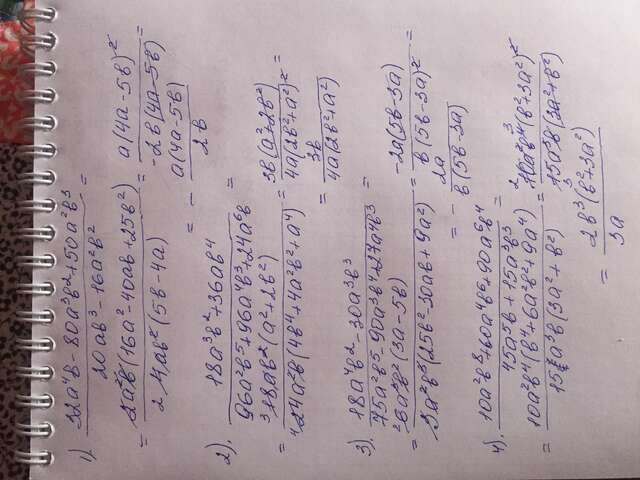 1). (32a⁴b - 80a³b² + 50a²b³)/(20ab³ - 16a²b²) =
= 2a²b(16a² - 40ab + 25b²)/(2 4ab²(5b - 4a)) = a(4a - 5b)²/(-2b(4a - 5b)) =
= - a(4a - 5b)/(2b)
2). (18a³b² + 36ab⁴)/(96a²b⁵ + 96a⁴b³ + 24a⁶b) =
= 3 18ab²(a² + 2b²)/(4 24a²b(4b⁴ + 4a²b² + a⁴)) = 3b(a² + 2b²)/(4a(2b² + a²)²) =
= 3b/(4a(2b² + a²))
3). (18a⁴b² - 30a³b³)/(75a²b⁵ - 90a³b⁴ + 27a⁴b³) =
= 2 6a³b²(3a - 5b)/(3a²b³(25b² - 30ab + 9a²)) = -2a(5b - 3a)/(b(5b - 3a)²) =
= - 2a/(b(5b - 3a))
4). (10a²b⁸ + 60a⁴b⁶ + 90a⁶b⁴)/(45a⁵b + 15a³b³) =
= 10a²b⁴(b⁴ + 6a²b² + 9a⁴)/(15a³b(3a² + b²)) = 2 10a²b⁴ 3(b² + 3a²)²/(15a³b(3a² + b²))
= 2b³(b² + 3a²)/(3a)